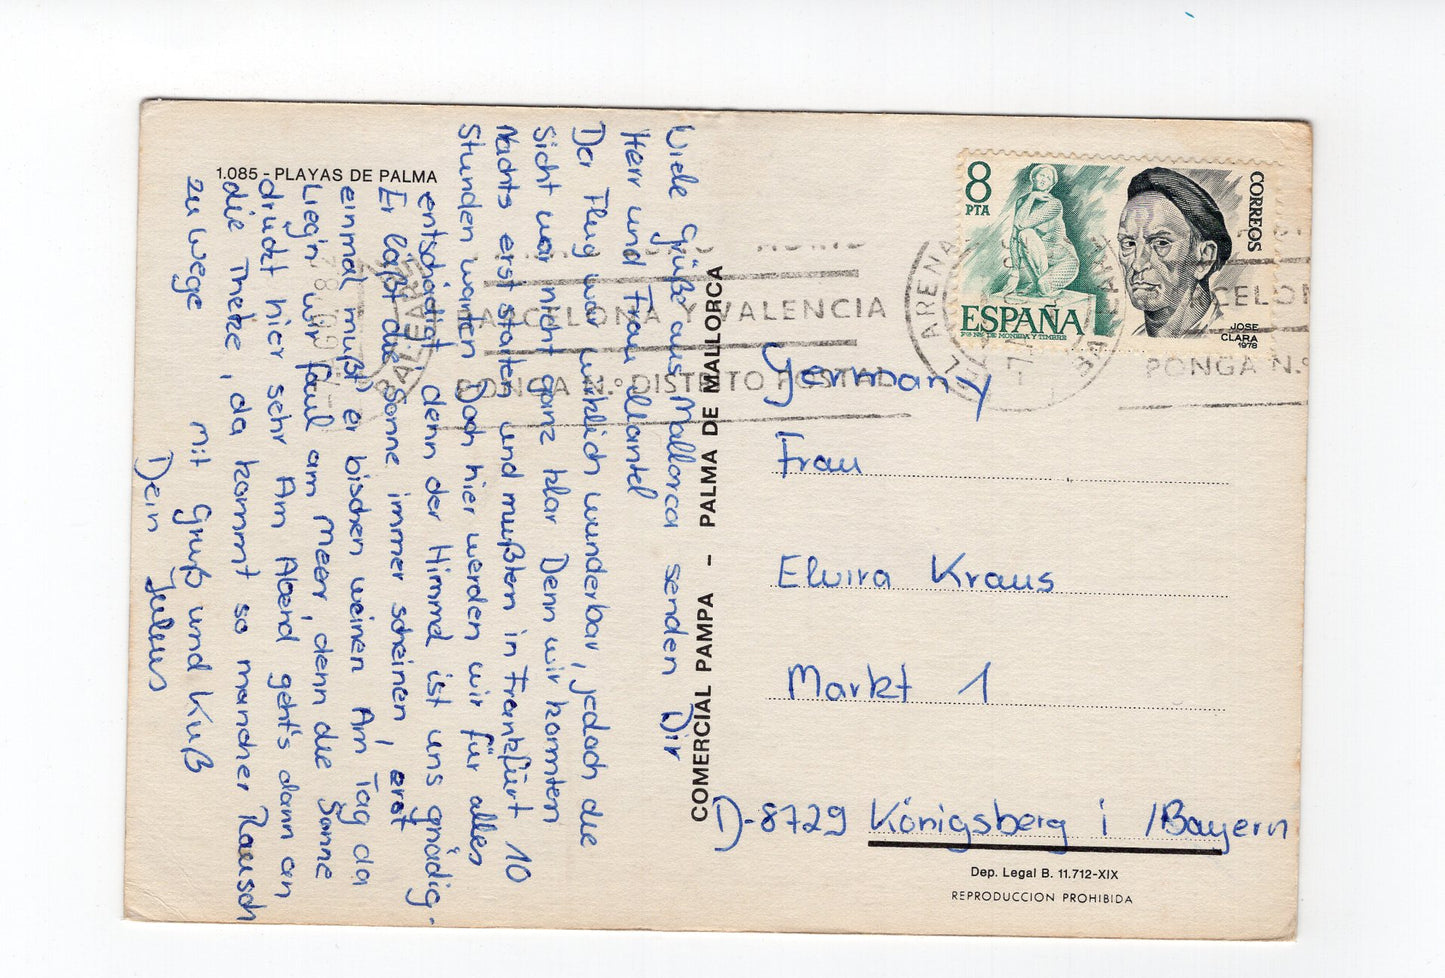 1.085 - PLAYAS DE PALMA
Viele Grüße aus Mallorca senden Dir
Herr und Frau Mantel
Der Flug war wirklich wunderbar, jedoch die
Sicht war nicht ganz klar Denn wir konnten
Nachts erst starten und mußten in Frankfurt 10
Stunden warten Doch hier werden wir für alles
entschädigt denn der Himmel ist uns gnädig.
Er läßt die Sonne immer scheinen, erst
einmal mußt er bischen weinen Am Tag da
Lieg'n wir faul am Meer, denn die Sonne
drückt hier sehr Am Abend geht's dann an
die Theke, da kommt so mancher Rausch
zu Wege
mit Gruß und Kuß
Dein
COMERCIAL PAMPA - PALMA DE MALLORCA
8
PTA
CORREOS
ESPAÑA
F.N. DE MONEDA Y TIMBRE
JOSE
CLARA
1978
BARCELONA Y VALENCIA
PONGA N.º DISTRITO POSTAL
ARENAL
BALEARES
PONGA N.º
Germany
Frau
Elvira Kraus
Markt 1
D-8729 Königsberg i /Bayern
Dep. Legal B. 11.712-XIX
REPRODUCCION PROHIBIDA